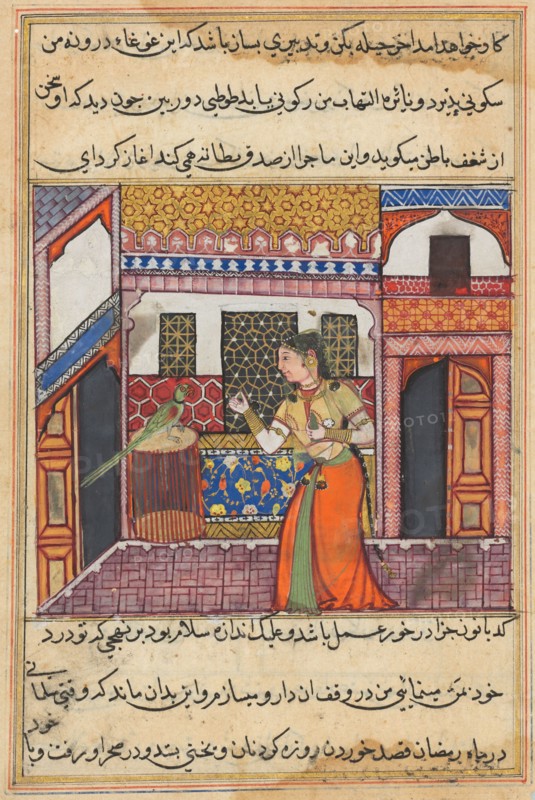 کار خواهد امد اخر حیله بکن و تدبیری بساز باشد که این غوغاء درونه من
سکونی پذیرد و نائره التهاب من رکونی یابد طوطی دوربین چون دید که او سخن
از شغف باطن میکوید و این ماجرا از صدق بطانه می کند اغاز کرد ای
کدبانو جزا در خور عمل باشد و علیک اندازه سلام بود بر نهجی که تو درد
خود بمن مینمائی من در وقف ان دارو میسازم و این بدان ماند که وقتی
در ماه رمضان قصد خوردن روزه کرد نان و یخنی بستد و در صحرا رفت و با
خود